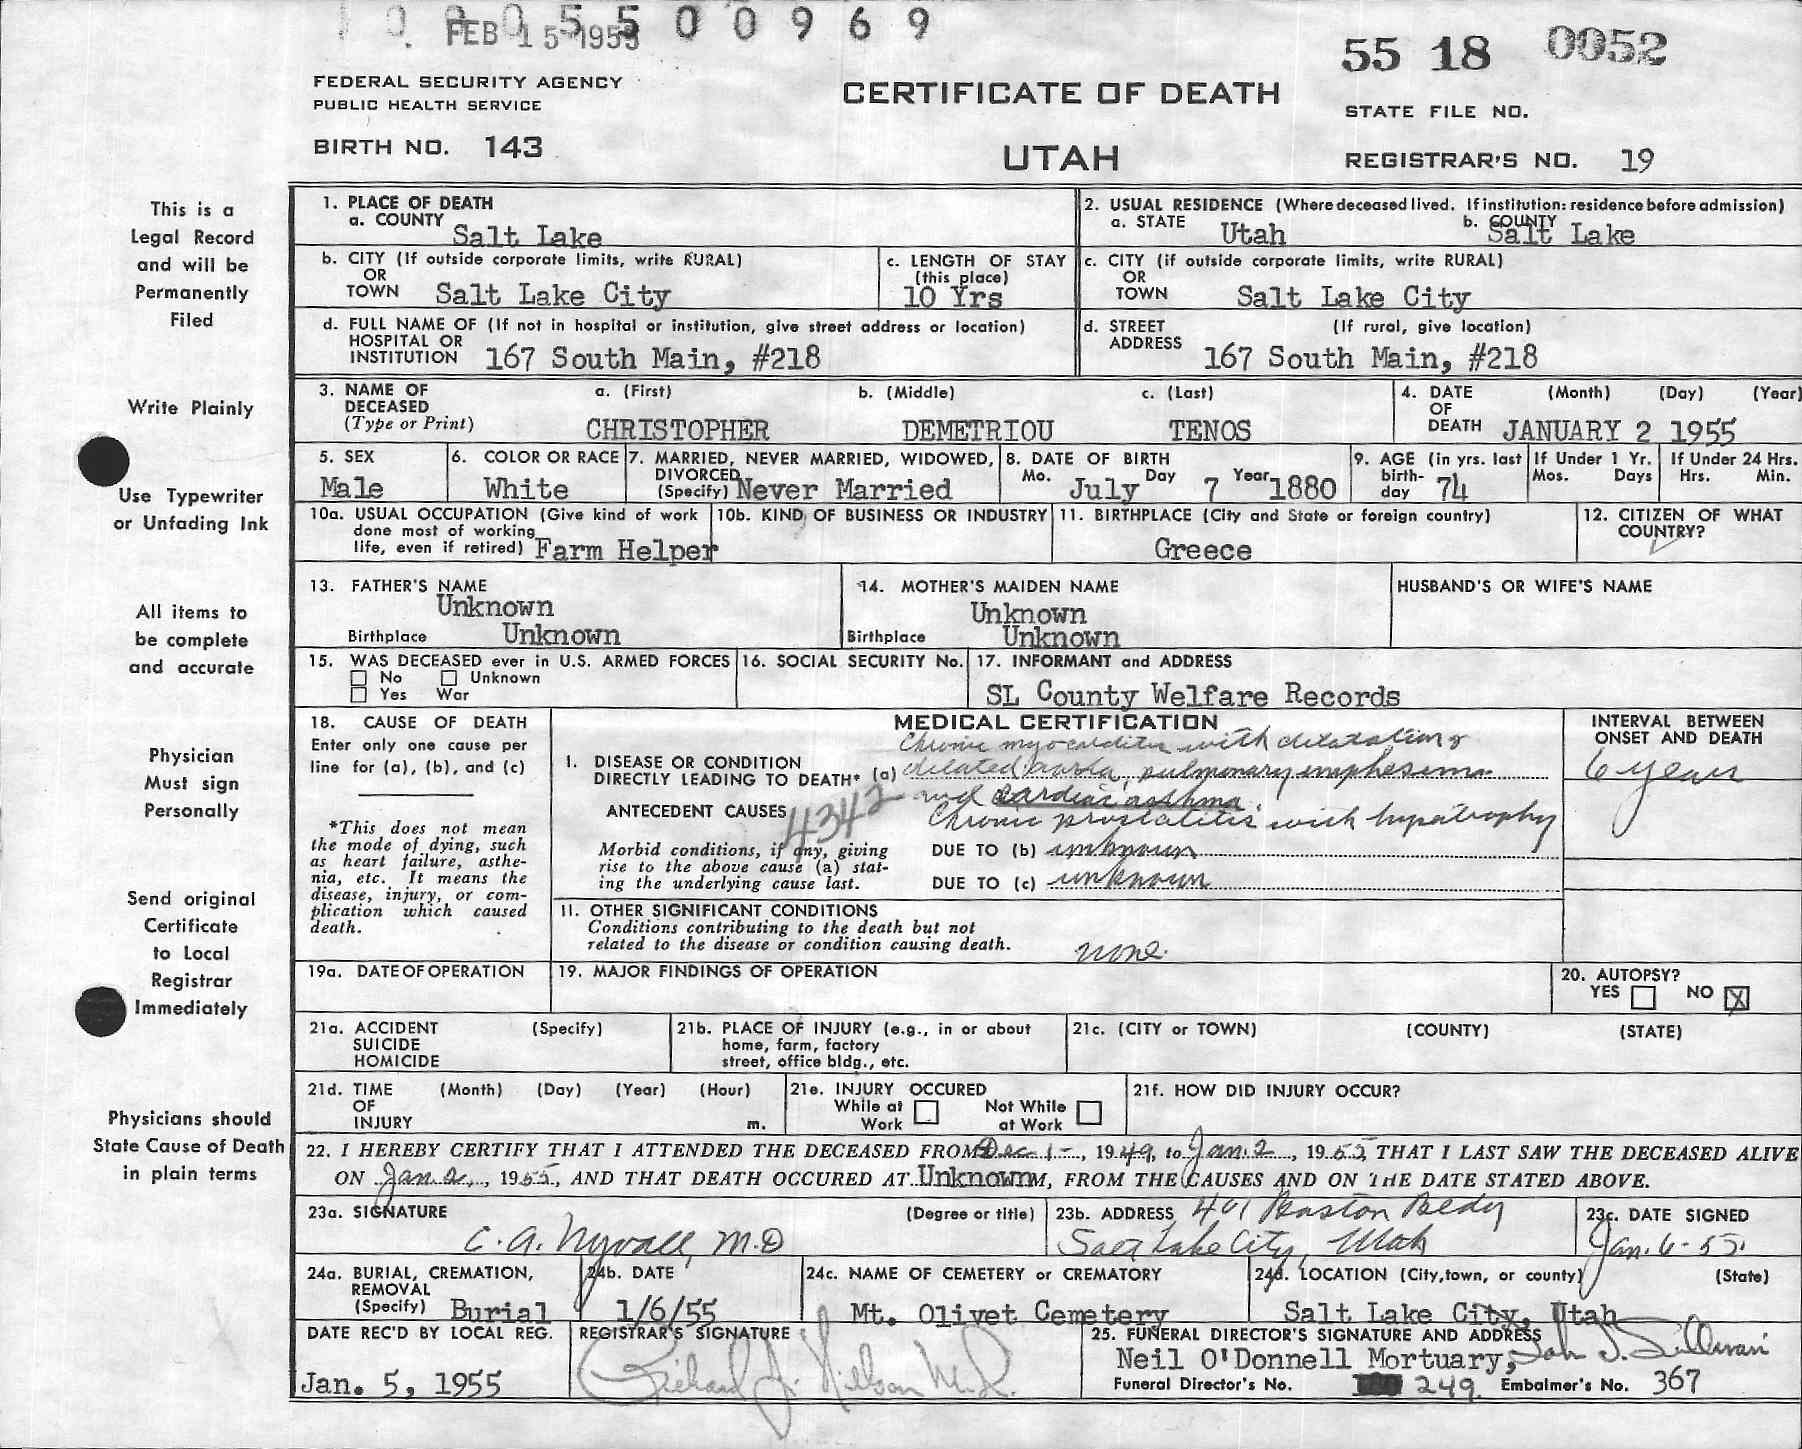 FEB 15 1955 5 0 0 9 6 9
55 18 0052
FEDERAL SECURITY AGENCY
PUBLIC HEALTH SERVICE
CERTIFICATE OF DEATH
STATE FILE NO.
BIRTH NO. 143
UTAH
REGISTRAR'S NO. 19
This is a
Legal Record
and will be
Permanently
Filed
Write Plainly
Use Typewriter
or Unfading Ink
All items to
be complete
and accurate
Physician
Must sign
Personally
Send original
Certificate
to Local
Registrar
Immediately
Physicians should
State Cause of Death
in plain terms
1. PLACE OF DEATH
a. COUNTY
Salt Lake
2. USUAL RESIDENCE (Where deceased lived. If institution: residence before admission)
a. STATE Utah b. COUNTY Salt Lake
b. CITY (If outside corporate limits, write RURAL)
OR
TOWN Salt Lake City
c. LENGTH OF STAY
(this place)
10 Yrs
c. CITY (if outside corporate limits, write RURAL)
OR
TOWN Salt Lake City
d. FULL NAME OF (If not in hospital or institution, give street address or location)
HOSPITAL OR
INSTITUTION 167 South Main, #218
d. STREET (If rural, give location)
ADDRESS
167 South Main, #218
3. NAME OF a. (First) b. (Middle) c. (Last)
DECEASED
(Type or Print) CHRISTOPHER DEMETRIOU TENOS
4. DATE (Month) (Day) (Year)
OF
DEATH JANUARY 2 1955
5. SEX
Male
6. COLOR OR RACE
White
7. MARRIED, NEVER MARRIED, WIDOWED,
DIVORCED
(Specify) Never Married
8. DATE OF BIRTH
Mo. July Day 7 Year 1880
9. AGE (in yrs. last
birth-
day 74
If Under 1 Yr.
Mos. Days
If Under 24 Hrs.
Hrs. Min.
10a. USUAL OCCUPATION (Give kind of work
done most of working
life, even if retired) Farm Helper
10b. KIND OF BUSINESS OR INDUSTRY
11. BIRTHPLACE (City and State or foreign country)
Greece
12. CITIZEN OF WHAT
COUNTRY?
13. FATHER'S NAME
Unknown
Birthplace Unknown
14. MOTHER'S MAIDEN NAME
Unknown
Birthplace Unknown
HUSBAND'S OR WIFE'S NAME
15. WAS DECEASED ever in U.S. ARMED FORCES
No Unknown
Yes War
16. SOCIAL SECURITY No.
17. INFORMANT and ADDRESS
SL County Welfare Records
18. CAUSE OF DEATH
Enter only one cause per
line for (a), (b), and (c)
*This does not mean
the mode of dying, such
as heart failure, asthe-
nia, etc. It means the
disease, injury, or com-
plication which caused
death.
MEDICAL CERTIFICATION
Chronic myocarditis with dilatation &
I. DISEASE OR CONDITION
DIRECTLY LEADING TO DEATH* (a) dilated aorta, pulmonary emphesima
and cardiac asthma.
ANTECEDENT CAUSES 4342
Chronic prostatitis with hypatrophy
Morbid conditions, if any, giving
rise to the above cause (a) stat-
ing the underlying cause last.
DUE TO (b) unknown
DUE TO (c) unknown
II. OTHER SIGNIFICANT CONDITIONS
Conditions contributing to the death but not
related to the disease or condition causing death. none.
INTERVAL BETWEEN
ONSET AND DEATH
6 years
19a. DATE OF OPERATION
19. MAJOR FINDINGS OF OPERATION
20. AUTOPSY?
YES NO X
21a. ACCIDENT (Specify)
SUICIDE
HOMICIDE
21b. PLACE OF INJURY (e.g., in or about
home, farm, factory
street, office bldg., etc.
21c. (CITY or TOWN) (COUNTY) (STATE)
21d. TIME (Month) (Day) (Year) (Hour)
OF
INJURY m.
21e. INJURY OCCURED
While at Work Not While at Work
21f. HOW DID INJURY OCCUR?
22. I HEREBY CERTIFY THAT I ATTENDED THE DECEASED FROM Dec 1-, 1949, to Jan. 2, 1955, THAT I LAST SAW THE DECEASED ALIVE
ON Jan. 2, 1955, AND THAT DEATH OCCURED AT Unknown M, FROM THE CAUSES AND ON THE DATE STATED ABOVE.
23a. SIGNATURE (Degree or title)
C. A. Nyvall, M.D
23b. ADDRESS 401 Boston Bldg
Salt Lake City, Utah
23c. DATE SIGNED
Jan. 6-55.
24a. BURIAL, CREMATION,
REMOVAL
(Specify) Burial
24b. DATE
1/6/55
24c. NAME OF CEMETERY or CREMATORY
Mt. Olivet Cemetery
24d. LOCATION (City, town, or county) (State)
Salt Lake City, Utah
DATE REC'D BY LOCAL REG.
Jan. 5, 1955
REGISTRAR'S SIGNATURE
Richard J. Nelson M.D.
25. FUNERAL DIRECTOR'S SIGNATURE AND ADDRESS
Neil O'Donnell Mortuary, John J. Sullivan
Funeral Director's No. 249. Embalmer's No. 367